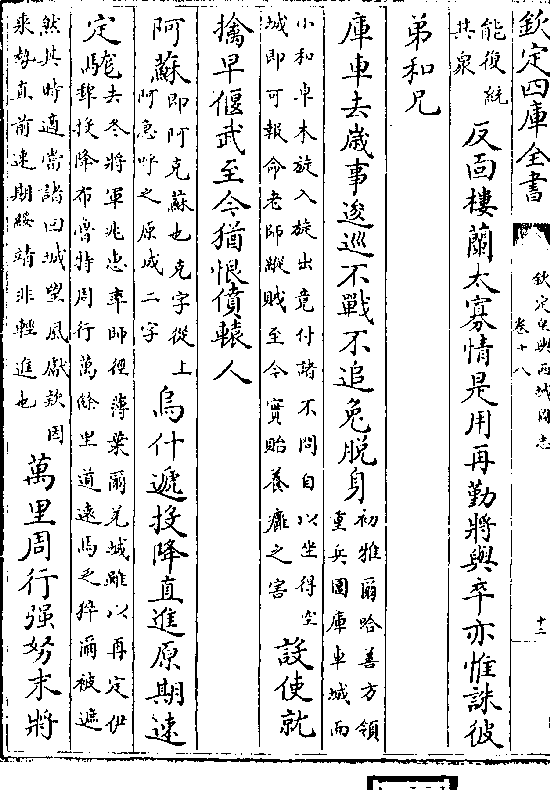 欽定四庫全書
欽定皇輿西域圖志
卷十八
十二
能復統
其衆
反面樓蘭太寡情是用再勤將與卒亦惟誅彼
弟和兄
庫車去歲事逡巡不戰不追兔脫身
初雅爾哈善方領
重兵圍庫車城而
小和卓木旋入旋出竟付諸不問自以坐得空
城即可報命老師蹤賊至今實貽養癰之害
設使就
擒早偃武至今猶恨僨轅人
阿蘇
即阿克蘇也克字從上
阿急呼之原成二字
烏什遞投降直進原期速
定駹
去冬將軍兆惠率師徑薄葉爾羌城雖以再定伊
犂投降布魯特周行萬餘里道遠馬乏猝爾被遮
然其時適當諸回城望風獻欵因
乘勢直前速期綏靖非輕進也
萬里周行强弩末將